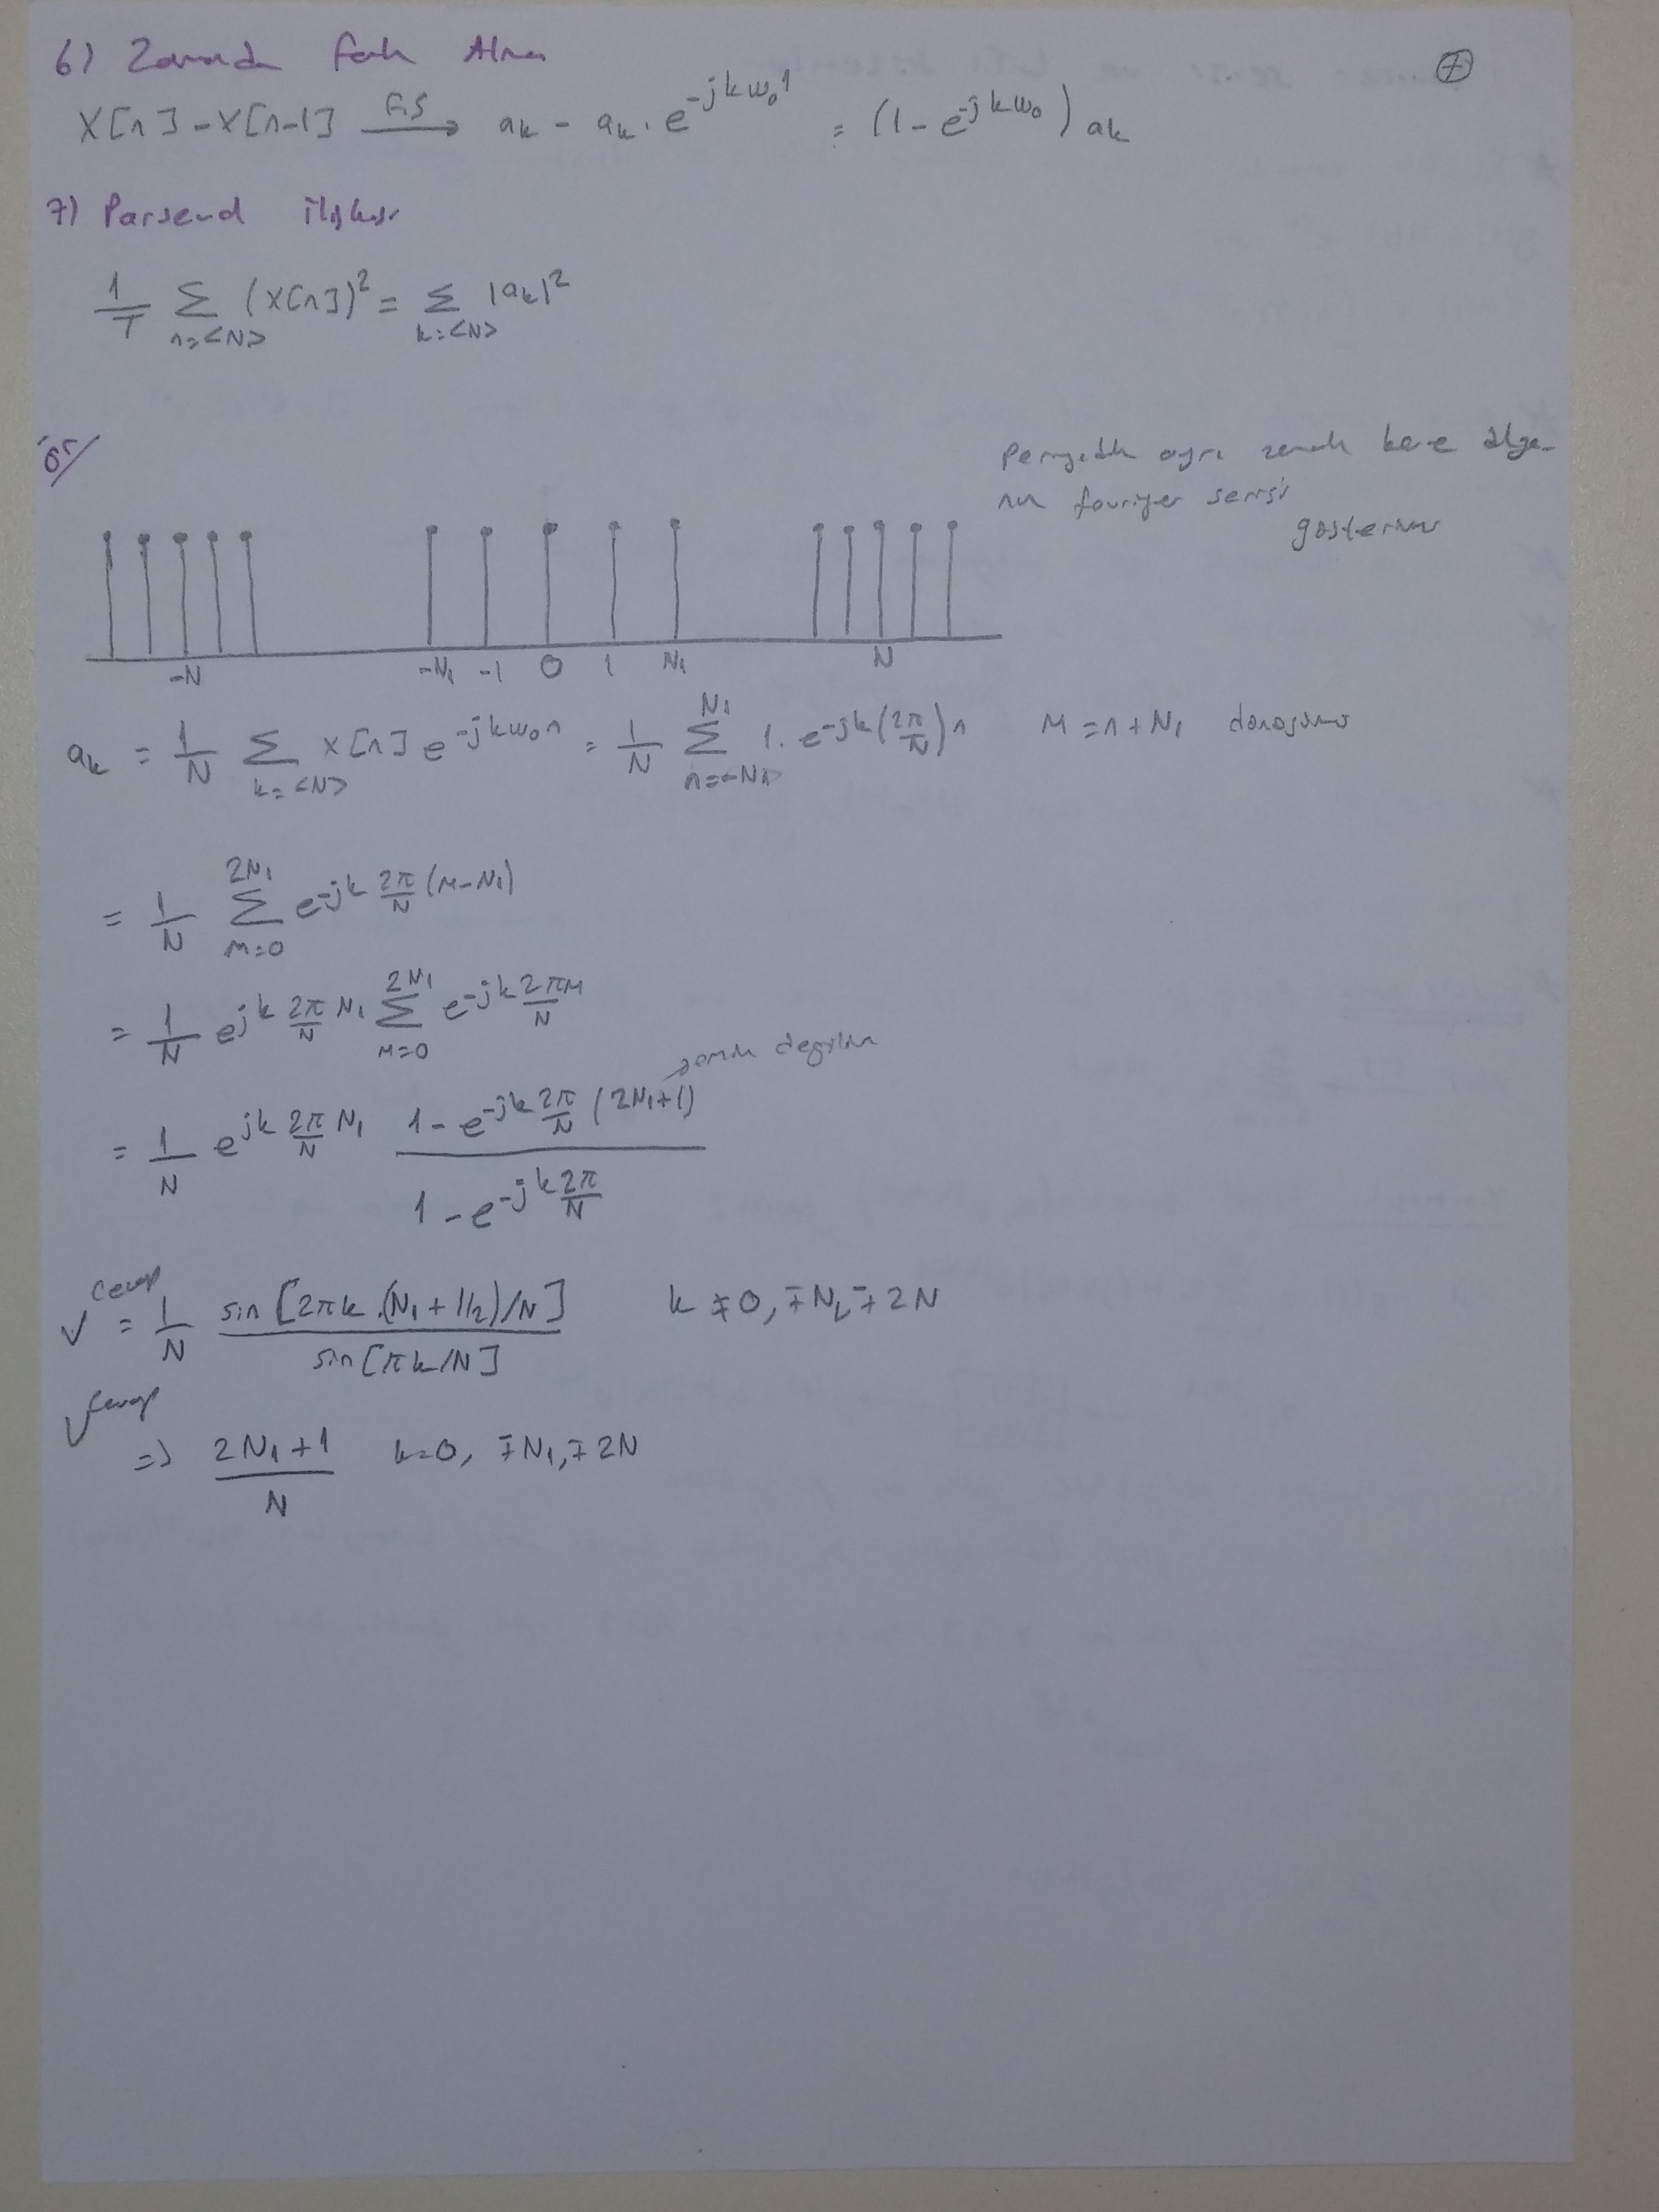 6) Zamanda Fark Alma
⑦
x[n] - x[n-1] F.S → ak - ak . e^-jkω₀1 = (1 - e^-jkω₀) ak
7) Parseval ilişkisi
1/T Σ n=<N> (x[n])² = Σ k=<N> |ak|²
ör/
Periyodik ayrı zamanlı kare dalga
nın fouriyer serisi
gösterimi
-N -N₁ -1 0 1 N₁ N
ak = 1/N Σ k=<N> x[n] e^-jkω₀n = 1/N Σ n=-N₁ N₁ 1. e^-jk(2π/N)n M = n + N₁ dönüşümü
= 1/N Σ M=0 2N₁ e^-jk 2π/N (M-N₁)
= 1/N e^jk 2π/N N₁ Σ M=0 2N₁ e^-jk 2π/N M
= 1/N e^jk 2π/N N₁ (1 - e^-jk 2π/N (2N₁+1)) / (1 - e^-jk 2π/N)
✓ cevap = 1/N sin[2πk.(N₁ + 1/2)/N] / sin[πk/N] k ≠ 0, ∓N, ∓2N
✓ cevap => (2N₁ + 1)/N k=0, ∓N₁, ∓2N